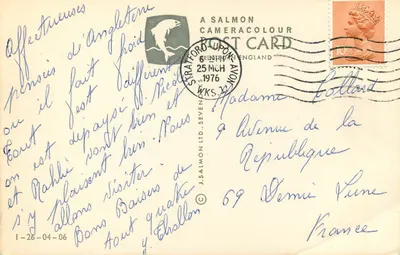 Affectueuses
pensées d'Angleterre
où il fait froid
Tout est différent
on est dépaysé. Nicole
et Robbie vont bien et
s'y plaisent bien. Nous
allons visiter.
Bons Baisers de
tout
y
1-26-04-06
A SALMON
CAMERACOLOUR
POST CARD
ENGLAND
© J. SALMON LTD., SEVEN
STRATFORD-UPON-AVON
25 MCH
1976
WKS.
Madame Collard
9 Avenue de la
République
69
France